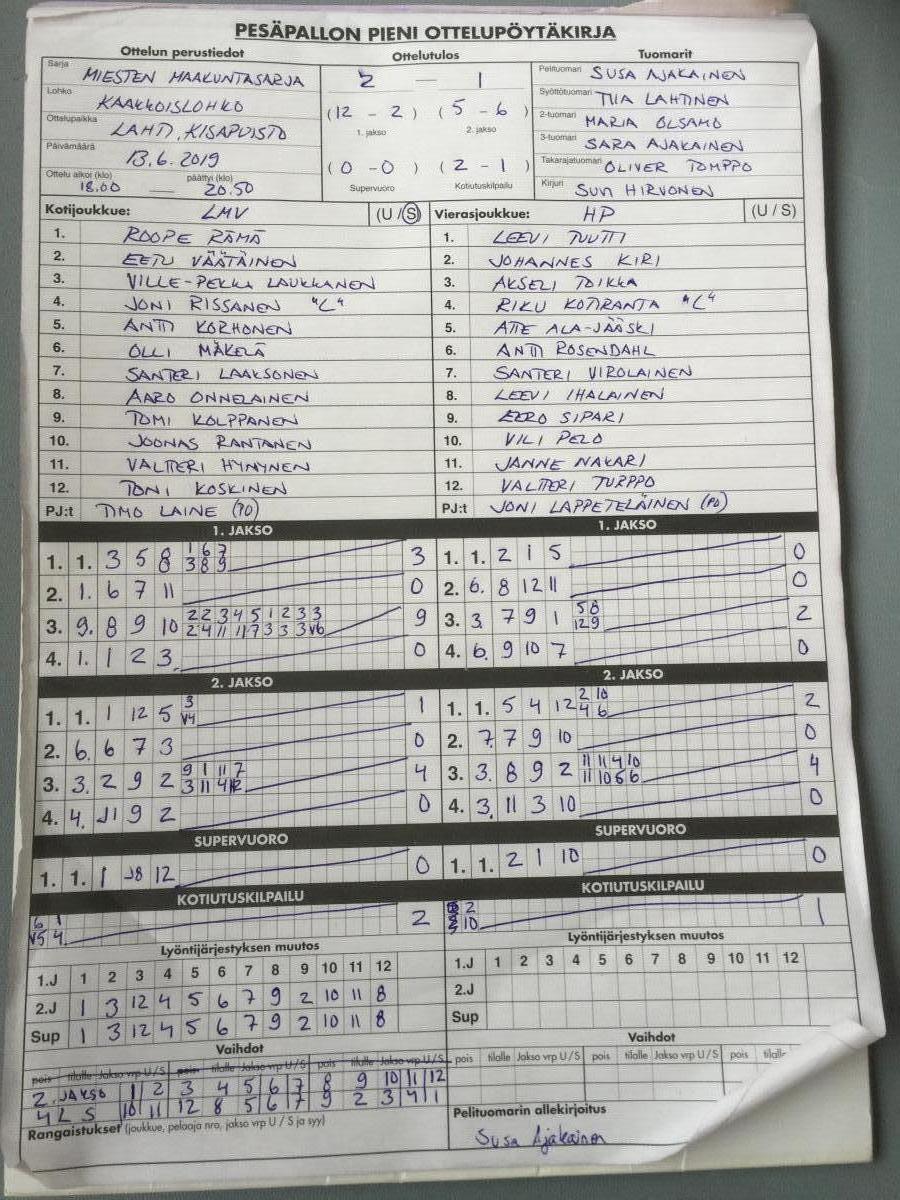 PESÄPALLON PIENI OTTELUPÖYTÄKIRJA
Ottelun perustiedot Ottelutulos Tuomarit
Sarja MIESTEN MAAKUNTASARJA
Lohko KAAKKOISLOHKO
Ottelupaikka LAHTI, KISAPUISTO
Päivämäärä 13.6.2019
Ottelu alkoi (klo) 18.00 — päättyi (klo) 20.50
2 — 1
(12 - 2) (5 - 6)
1. jakso 2. jakso
(0 - 0) (2 - 1)
Supervuoro Kotiutuskilpailu
Pelituomari SUSA AJAKAINEN
Syöttötuomari TIIA LAHTINEN
2-tuomari MARIA OLSAMO
3-tuomari SARA AJAKAINEN
Takarajatuomari OLIVER TOMPPO
Kirjuri SUVI HIRVONEN
Kotijoukkue: LMV (U / S)
1. ROOPE RÄMÄ
2. EETU VÄÄTÄINEN
3. VILLE-PEKKA LAUKKANEN
4. JONI RISSANEN "C"
5. ANTTI KORHONEN
6. OLLI MÄKELÄ
7. SANTERI LAAKSONEN
8. AARO ONNELAINEN
9. TOMI KOLPPANEN
10. JOONAS RANTANEN
11. VALTTERI HYNYNEN
12. TONI KOSKINEN
PJ:t TIMO LAINE (PJ)
Vierasjoukkue: HP (U / S)
1. LEEVI TUUTTI
2. JOHANNES KIRI
3. AKSELI TOIKKA
4. RIKU KOTIRANTA "C"
5. ATTE ALA-JÄÄSKI
6. ANTTI ROSENDAHL
7. SANTERI VIROLAINEN
8. LEEVI IHALAINEN
9. EERO SIPARI
10. VILI PELO
11. JANNE NAKARI
12. VALTTERI TURPPO
PJ:t JONI LAPPETELÄINEN (PJ)
1. JAKSO
1. 1. 3 5 8 1 6 7 3
3 8 9
2. 1. 6 7 11 0
3. 9. 8 9 10 2 2 3 4 5 1 2 3 3 9
2 4 11 11 7 3 3 3 V6
4. 1. 1 2 3 0
1. JAKSO
1. 1. 2 1 5 0
2. 6. 8 12 11 0
3. 3 7 9 1 5 8 2
12 9
4. 6. 9 10 7 0
2. JAKSO
1. 1. 1 12 5 3 1
V4
2. 6. 6 7 3 0
3. 3. 2 9 2 9 1 11 7 4
3 11 4 12
4. 4. 11 9 2 0
2. JAKSO
1. 1. 5 4 12 2 10 2
4 6
2. 7. 7 9 10 0
3. 3. 8 9 2 11 11 4 10 4
11 10 6 6
4. 3. 11 3 10 0
SUPERVUORO
1. 1. 1 8 12 0
SUPERVUORO
1. 1. 2 1 10 0
KOTIUTUSKILPAILU
6 1 2
V5 4
KOTIUTUSKILPAILU
2 1
10
Lyöntijärjestyksen muutos
1.J 1 2 3 4 5 6 7 8 9 10 11 12
2.J 1 3 12 4 5 6 7 9 2 10 11 8
Sup 1 3 12 4 5 6 7 9 2 10 11 8
Lyöntijärjestyksen muutos
1.J 1 2 3 4 5 6 7 8 9 10 11 12
2.J
Sup
Vaihdot
pois tilalle Jakso vrp U/S pois tilalle Jakso vrp U/S pois tilalle Jakso vrp U/S
2. JAKSO 1 2 3 4 5 6 7 8 9 10 11 12
4 L S 10 11 12 8 5 6 7 9 2 3 4 1
Rangaistukset (joukkue, pelaaja nro, jakso vrp U / S ja syy)
Vaihdot
pois tilalle Jakso vrp U/S pois tilalle Jakso vrp U/S pois tilalle
Pelituomarin allekirjoitus
Susa Ajakainen